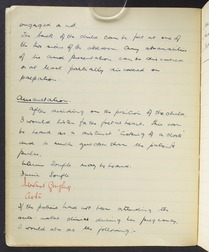 engaged or not.
The back of the child can be felt at one of
the two sides of the abdomen. Any abnormalities
of lie and presentation can be discovered
or at least partially discovered on
palpation.
Auscultation.
After deciding on the position of the child,
I would listen for the foetal heart. This can
be heard as a distinct "ticking of a clock"
and is much quicker than the patient's
pulse.
Uterine Souffle may be heard.
Funic Souffle
If the patient had not been attending the
ante-natal clinic during her pregnancy,
I would also do the following:-